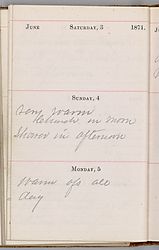 June Saturday, 3 1871.
Sunday, 4
very warm
Church in morn
Shower in afternoon
Monday, 5
Warm ofs all
day